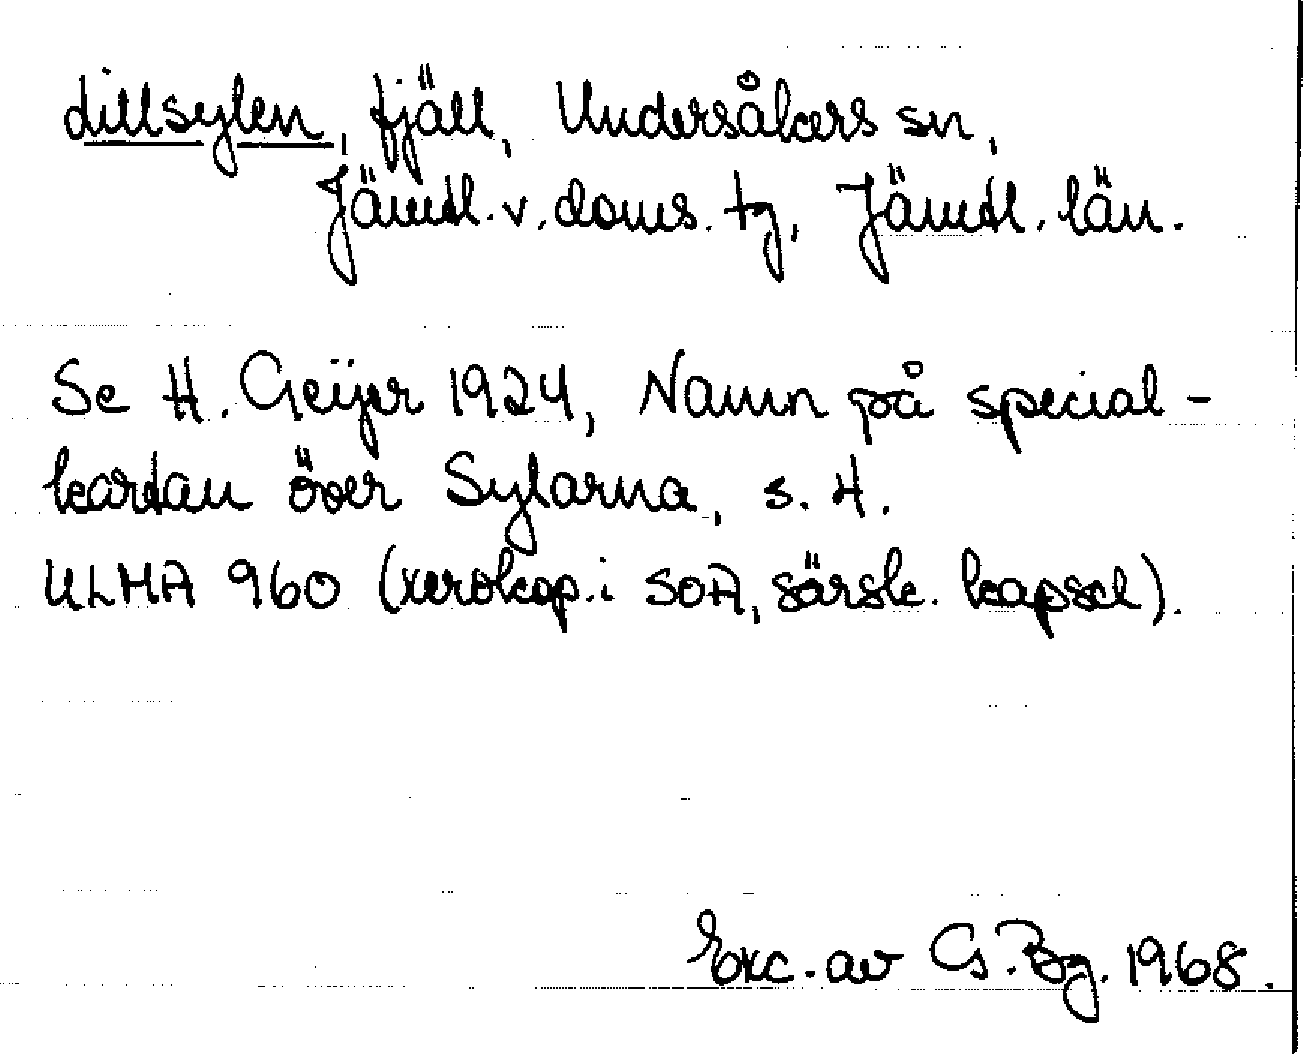 Lillsylen, fjäll, Undersåkers sn,
Jämtl. v. doms. tg, Jämtl. län.
Se H. Geijer 1924, Namn på special-
kartan över Sylarna, s. 4.
ULMA 960 (xerokop. i SOA, särsk. kapsel).
Exc. av G. Bg. 1968.